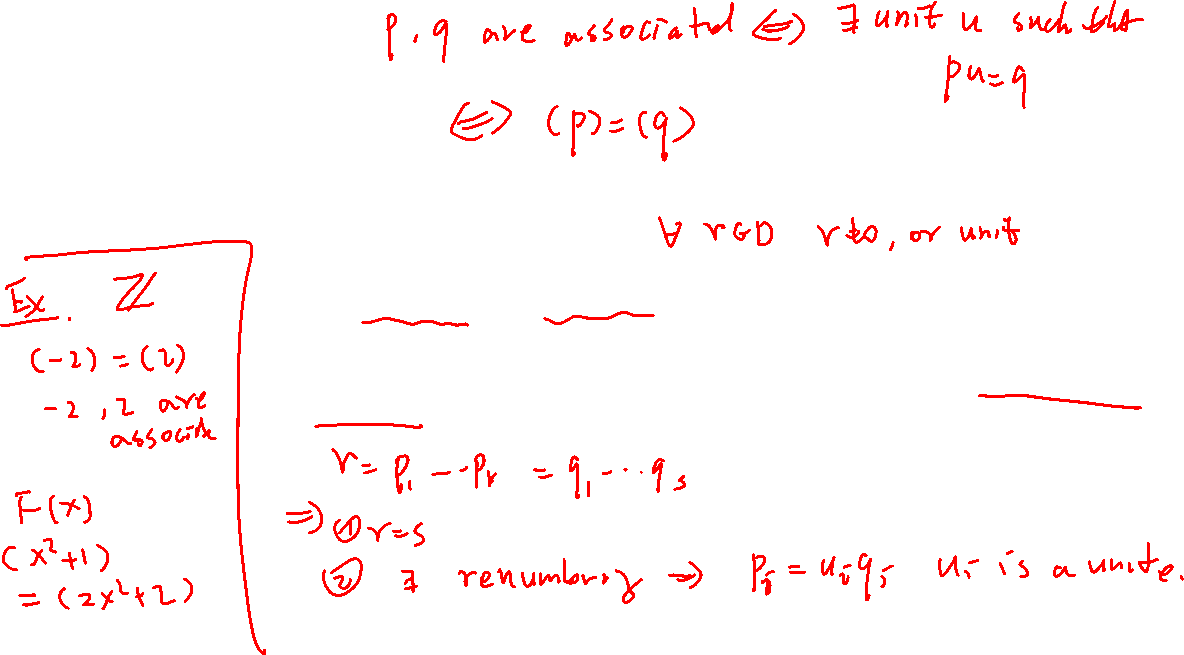 p, q are associated ⇔ ∃ unit u such that
pu = q
⇔ (p) = (q)
∀ r ∈ D r ≠ 0, or unit
Ex. ℤ
(-2) = (2)
-2, 2 are
associate
F(x)
(x²+1)
= (2x²+2)
r = p₁ --- pᵣ = q₁ ... qₛ
⇒ ① r = s
② ∃ renumbering ⇒ pᵢ = uᵢqᵢ uᵢ is a unite.